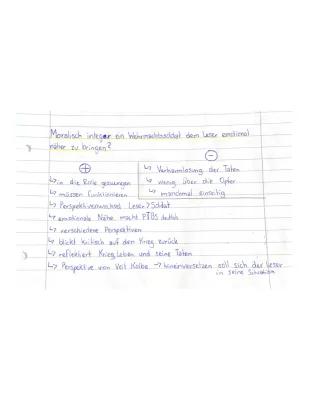 Moralisch integer ein Wehrmachtssoldat dem Leser emotional
näher zu bringen?
+
↳ in die Rolle gezwungen
↳ müssen funktionieren
↳ Perspektivenwechsel Leser > Soldat
↳ emotionale Nähe macht PTBS deutlich
↳ verschiedene Perspektiven
↳ blickt kritisch auf den Krieg zurück
↳ reflektiert Krieg, Leben und seine Taten
↳ Perspektive von Veit Kolbe → hineinversetzen soll sich der Leser
in seine Situation
−
↳ Verharmlosung der Taten
↳ wenig über die Opfer
↳ manchmal einseitig